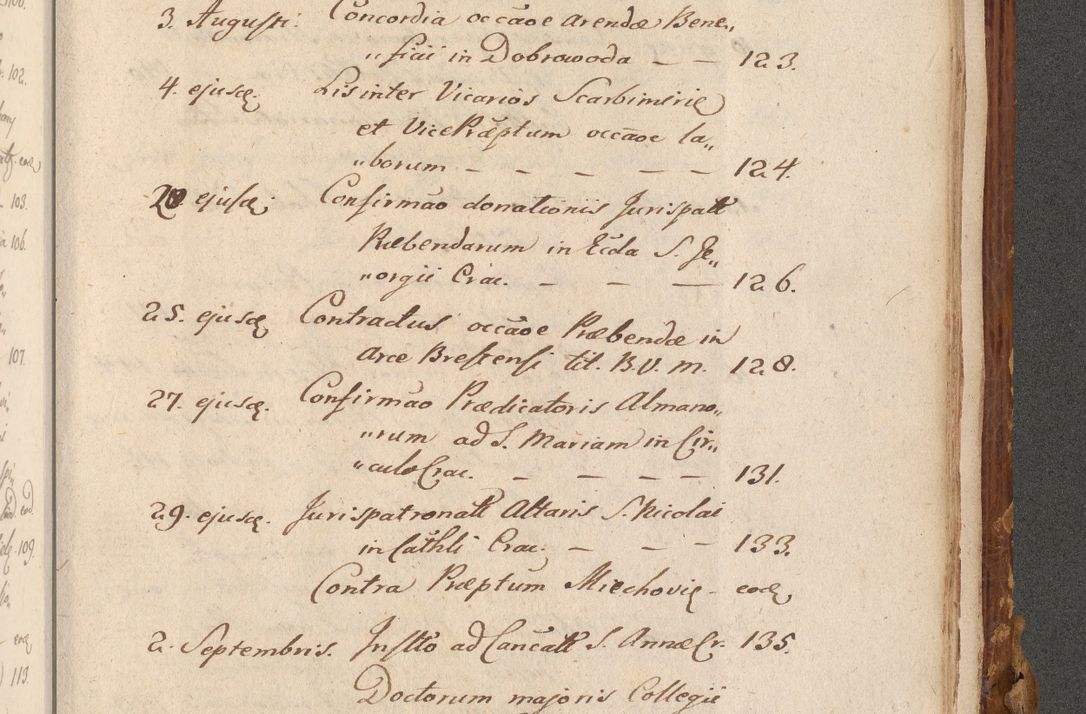 3. Augusti. Concordia occãoe arendæ Bene„
„ficii in Dobrowoda — — 123.
4. ejusdę. Lis inter Vicarios Scarbimiriē
et VicePræptum occãoe la„
„borum — — — — — 124.
20 ejusdę. Confirmão donationis Jurispatt
Præbendarum in Eccla S. Je„
„orgii Crac. — — — 126.
25. ejusdę Contractus occãoe Præbendæ in
Arce Brestensi tit. B. V. M. 128.
27. ejusdę. Confirmão Prædicatoris Almano„
„rum ad S. Mariam in Cir„
„culo Crac. — — — — 131.
29. ejusdę. Jurispatronatt Altaris S. Nicolai
in Cathli Crac. — — — 133.
Contra Præptum Miechovię – eodę
2. Septembris. Insttõ ad Cancãtt S. Annæ Cr. 135.
Doctorum majoris Collegii
102.
103.
106.
107.
109.
113.